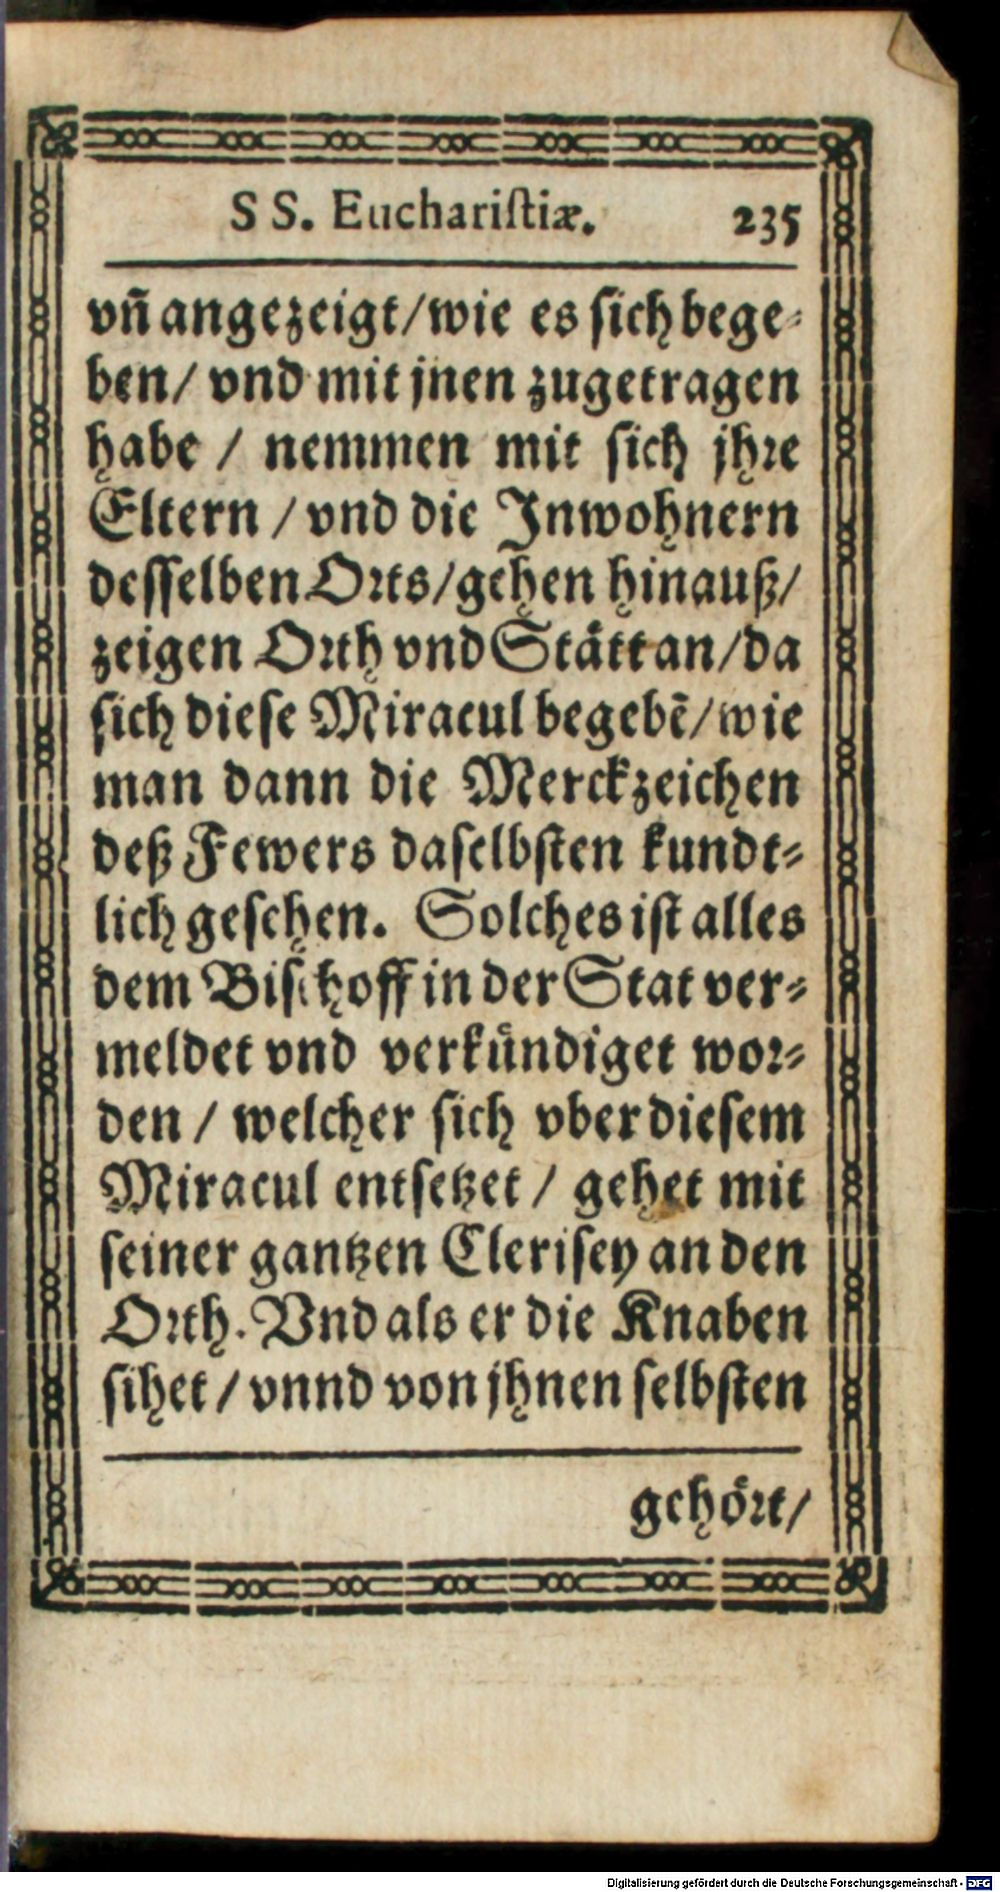 SS. Euchariſtiæ. 235
vñ angezeigt/wie es ſich bege-
ben/ vnd mit jnen zugetragen
habe / nemmen mit ſich jhre
Eltern / vnd die Inwohnern
deſſelben Orts/gehen hinauß/
zeigen Orth vnd Stätt an/da
ſich dieſe Miracul begebẽ/wie
man dann die Merckzeichen
deß Fewers daſelbſten kundt-
lich geſehen. Solches iſt alles
dem Biſchoff in der Stat ver-
meldet vnd verkündiget wor-
den / welcher ſich vber dieſem
Miracul entſetzet / gehet mit
ſeiner gantzen Cleriſey an den
Orth. Vnd als er die Knaben
ſihet / vnnd von jhnen ſelbſten
gehört/
Digitalisierung gefördert durch die Deutsche Forschungsgemeinschaft - DFG